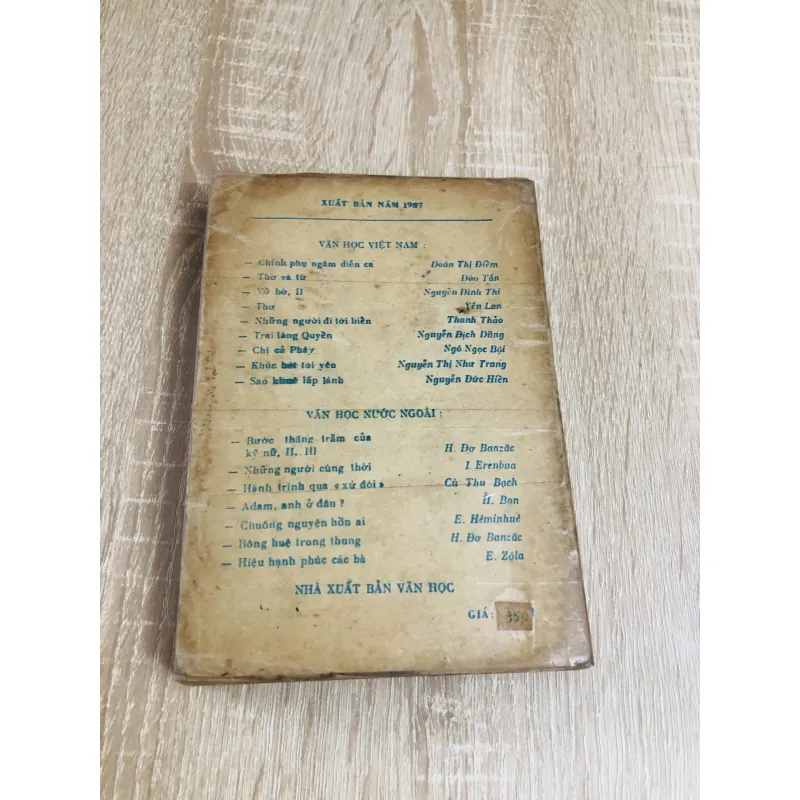 XUẤT BẢN NĂM 1987
VĂN HỌC VIỆT NAM :
— Chinh phụ ngâm diễn ca Đoàn Thị Điểm
— Thơ và từ Đào Tấn
— Vỡ bờ, II Nguyễn Đình Thi
— Thơ Yến Lan
— Những người đi tới biển Thanh Thảo
— Trai làng Quyền Nguyễn Địch Dũng
— Chị cả Phây Ngô Ngọc Bội
— Khúc hát tôi yêu Nguyễn Thị Như Trang
— Sao khuê lấp lánh Nguyễn Đức Hiền
VĂN HỌC NƯỚC NGOÀI :
— Bước thăng trầm của
kỹ nữ, II, III H. Đơ Banzăc
— Những người cùng thời I. Erenbua
— Hành trình qua «xứ đói» Cù Thu Bạch
— Adam, anh ở đâu ? H. Bon
— Chuông nguyện hồn ai E. Hêminhuê
— Bông huệ trong thung H. Đơ Banzăc
— Hiệu hạnh phúc các bà E. Zôla
NHÀ XUẤT BẢN VĂN HỌC
GIÁ :